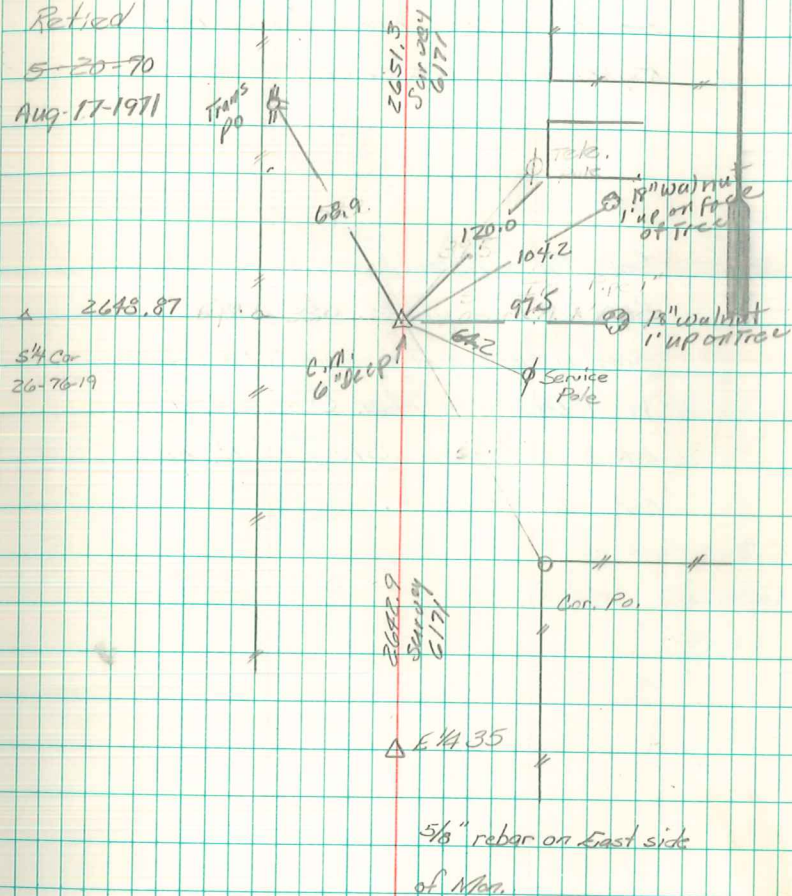 Retied
5-20-70
Aug-17-1971
Trans
po
2651.3
Survey
6171
Tele.
18" walnut
1' up on face
of Tree
68.9
120.0
104.2
97.5
64.2
18" walnut
1' up on Tree
2648.87
S 1/4 Cor
26-76-19
C.M.
6" Deep
Service
Pole
Cor. Po.
2642.9
Survey
6171
E 1/4 35
5/8" rebar on East side
of Mon.